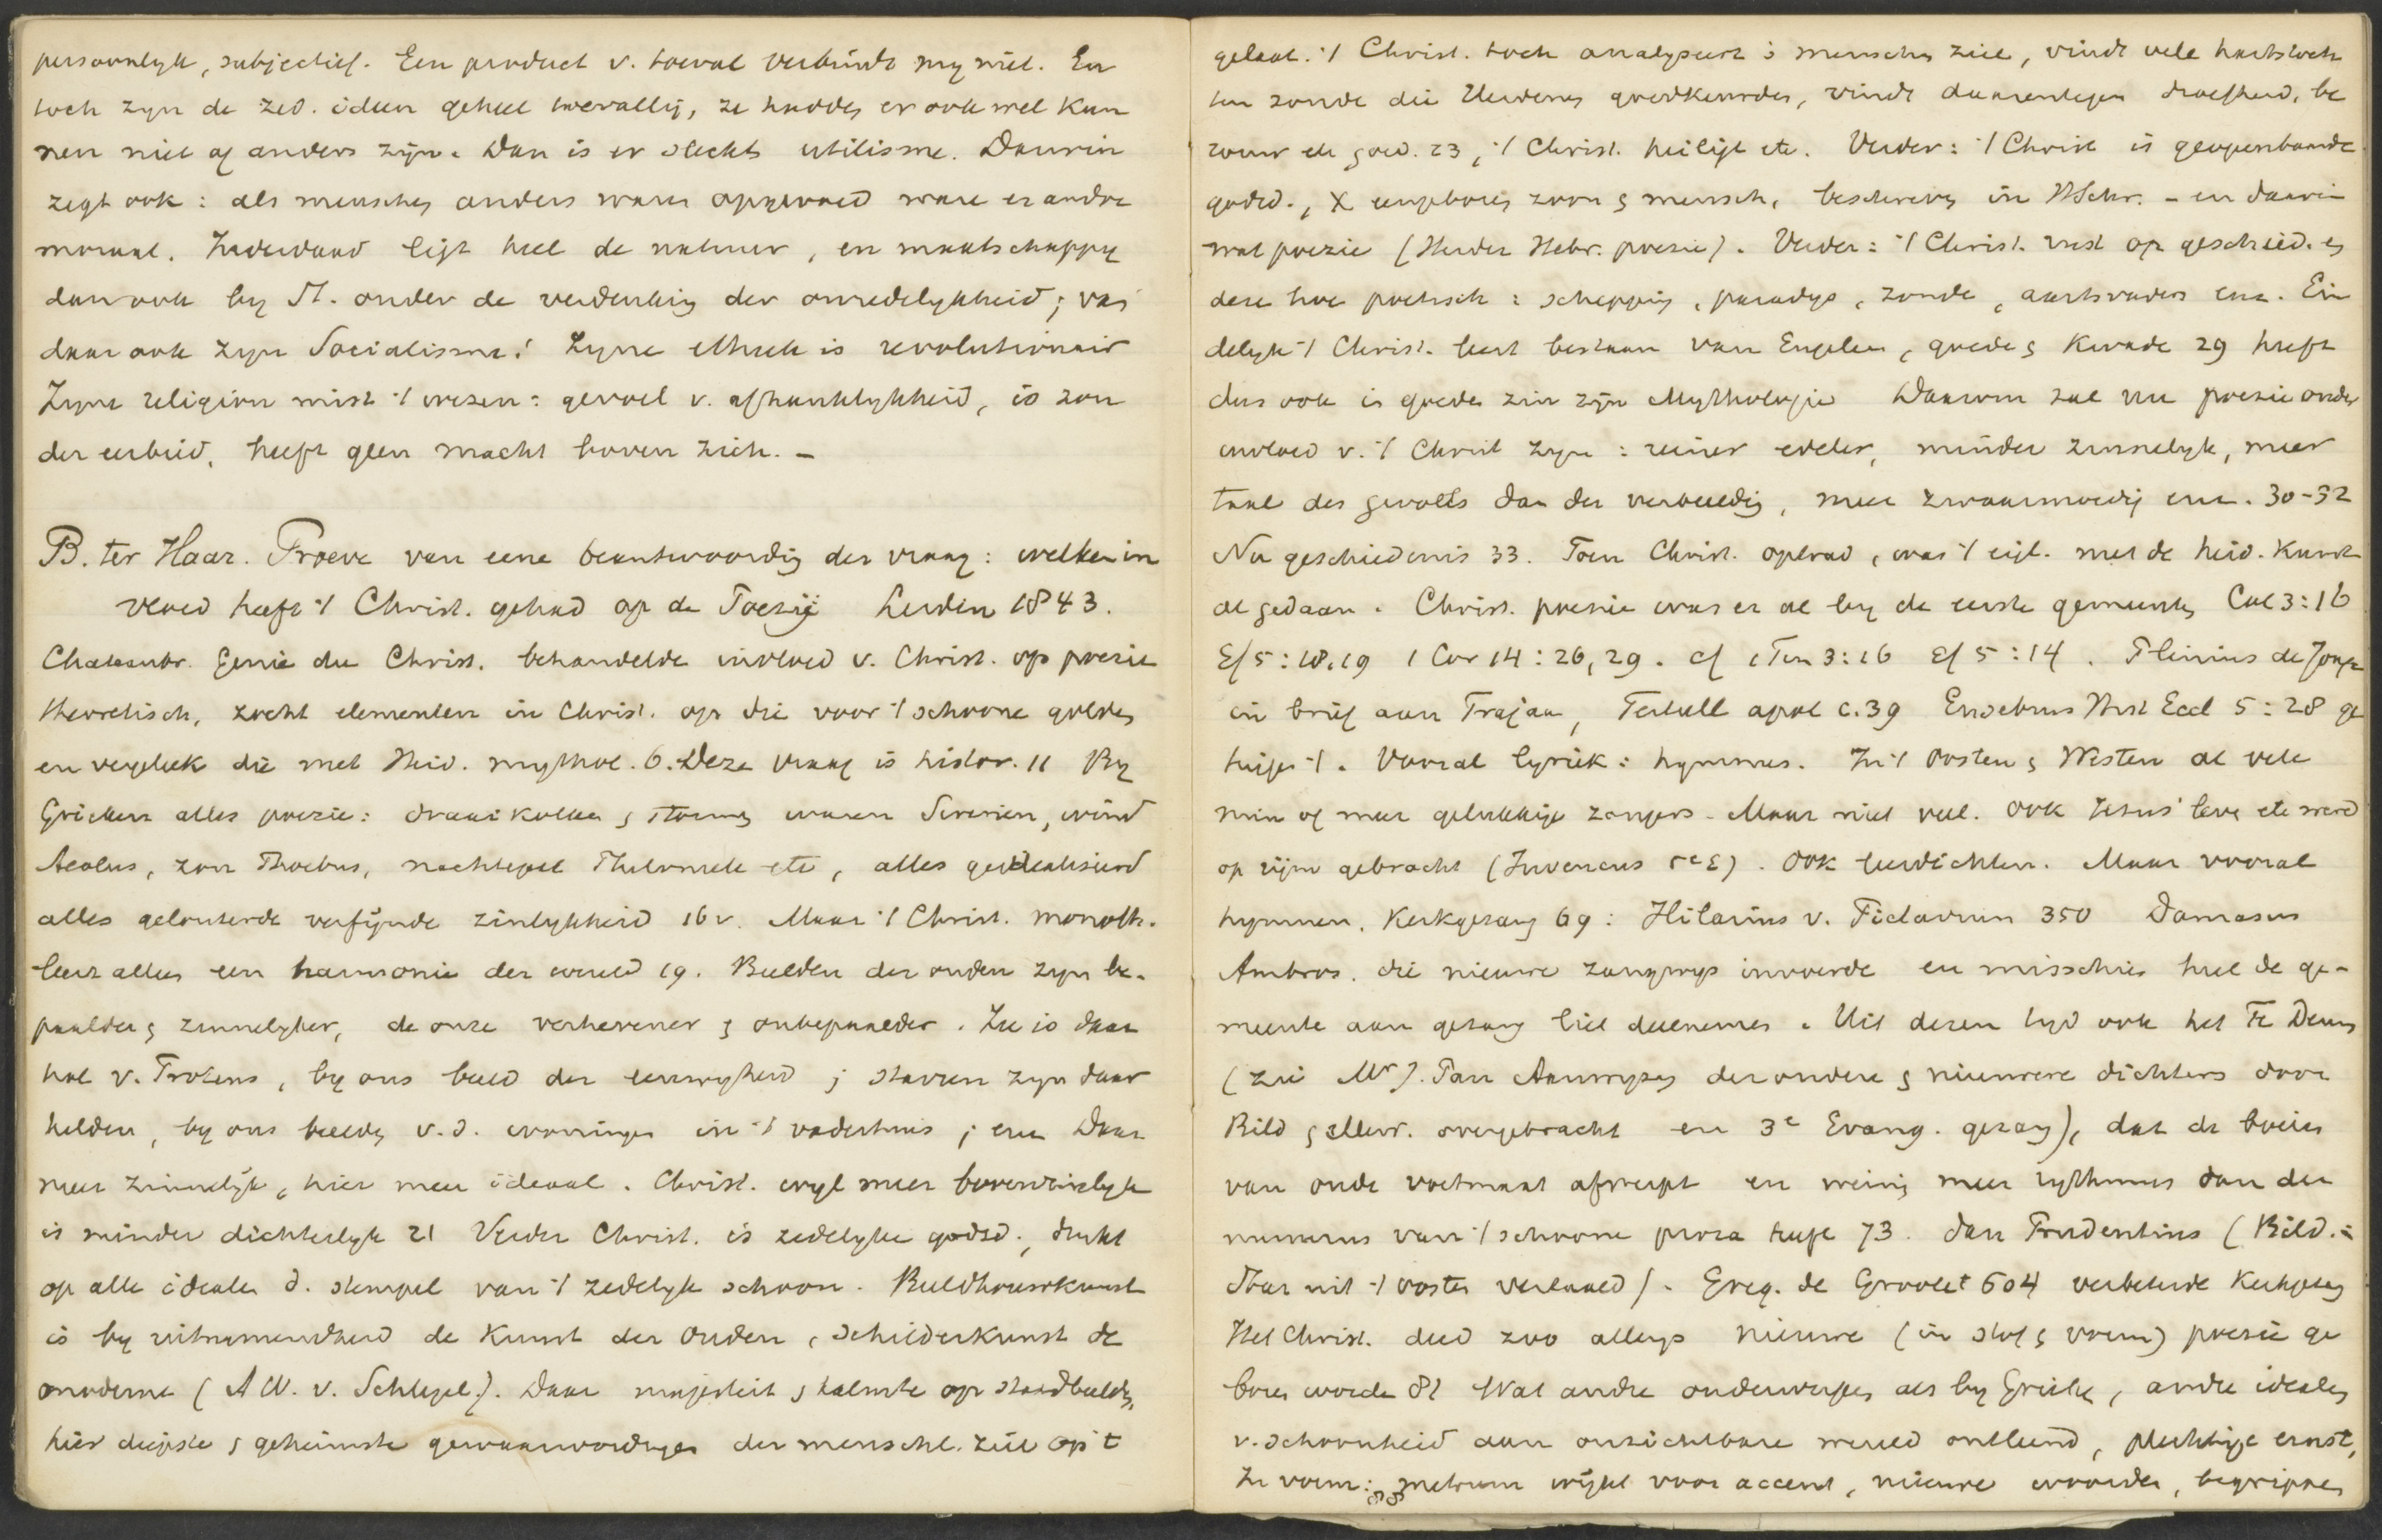 persoonlyk, subjectief. Een product v. toeval verbindt my niet. En
toch zyn de zed. ideen geheel toevallig, ze hadden er ook wel kun
nen niet of anders zijn. Dan is er slechts utilisme. Darwin
zegt ook: als menschen anders waren opgevoed ware er andre
moraal. Inderdaad ligt heel de natuur, en maatschappy
dan ook by St. onder de verdenking der onredelykheid; vas
daar ook zyn Socialisme! Zyne ethiek is revolutionair
Zyne religion mist 't wezen: gevoel v. afhanklykheid, is zon
der eerbied, heeft geen macht boven zich. –
B. ter Haar. Proeve van eene beantwoording der vraag: welken in
vloed heeft 't Christ. gehad op de Poezij Leiden 1843.
Chateaubr. Genie du Christ. behandelde invloed v. Christ. op poezie
theoretisch, zocht elementen in Christ. op die voor 't schoone golden
en vergeleek die met Heid. mythol. 6. Deze vraag is histor. 11 By
Grieken alles poezie: draaikolken en stroomen waren Sirenen, wind
Aeolus, zon Phoebus, nachtegaal Philomele etc, alles geidealiseerd
alles gelouterde verfijnde zinlykheid 16v. Maar 't Christ. monoth.
leert alles een harmonie der wereld 19. Beelden der ouden zyn be-
paalder en zinnelyker, de onze verhevener en onbepaalder. Zee is daar
hol v. Proteus, by ons beeld der eeuwigheid; starren zyn daar
helden, by ons beelden v.d. woningen in 't vaderhuis; enz Daar
meer zinnelijk, hier meer ideaal. Christ. wyl meer bovenzinlyk
is minder dichterlyk 21 Verder Christ. is zedelyke godsd., drukt
op alle idealen d. stempel van 't zedelyk schoon. Beeldhouwkunst
is by uitnemendheid de kunst der ouden, schilderkunst de
moderne (A W. v. Schlegel). Daar majesteit en kalmte op standbeelden,
hier diepste en geheimste gewaarwordingen der menschl. ziel op 't
gelaat. 't Christ. toch analyseert de menschen ziel, vindt vele hartstoch
ten zonde die Heidenen goedkeurden, vindt daarentegen droefheid, be
rouw etc goed. 23, 't Christ. heiligt etc. Verder: 't Christ is geopenbaarde
godsd., X eengeboren zoon en mensch, beschreven in HSchr. – en daarin
wat poezie (Herder Hebr. poesie). Verder: 't Christ. rust op geschied. en
deze hoe poetisch: schepping, paradys, zonde, aartsvaders enz. Ein
delyk 't Christ. leert bestaan van Engelen, goede en kwade 29 heeft
dus ook in goeden zin zijn Mythologie Daarom zal nu poezie onder
invloed v. 't Christ zyn: reiner edeler, minder zinnelyk, meer
taal des gevoels dan der verbeelding, meer zwaarmoedig enz. 30-32
Nu geschiedenis 33. Toen Christ. optrad, was 't eigl. met de heid. kunst
al gedaan. Christ. poezie was er al by de eerste gemeenten Col 3:16
Ef 5:18,19 1 Cor 14:26,29. cf 1 Tim 3:16 Ef 5:14. Plinius de Jonge
in brief aan Trajaan, Tertull apol c.39 Eusebius Hist Eccl 5:28 ge
tuigen 't. Vooral lyriek: hymnes. In 't Oosten en Westen al vele
min of meer gelukkige zangers. Maar niet veel. Ook Jesus' leven etc werd
op rijm gebracht (Juvencus 5e E). Ook leerdichten. Maar vooral
hymnen. Kerkgezang 69: Hilarius v. Pictavium 350 Damasus
Ambros. die nieuwe zangwys invoerde en misschien heel de ge-
meente aan gezang liet deelnemen. Uit dezen tyd ook het Te Deum
(zie Mr J. Pan Aanwyzen der oudere en nieuwere dichters door
Bild en allerr. overgebracht en 3e Evang. gezang), dat de boeien
van oude voetmaat afwerpt en weinig meer rythmus dan der
numerus van 't schoone proza heeft 73. Dan Prudentius (Bild. =
daar uit 't oosten vertaald). Greg. de Groote † 604 verbeterde kerkgezang
Het Christ. deed zoo allengs nieuwe (in stof en vorm) poezie ge
boren worden 81 Wat andre onderwerpen als by Grieken, andre idealen
v. schoonheid aan onzichtbare wereld ontleend, plechtige ernst,
In vorm: metrum wijkt voor accent, nieuwe woorden, begrippen
88